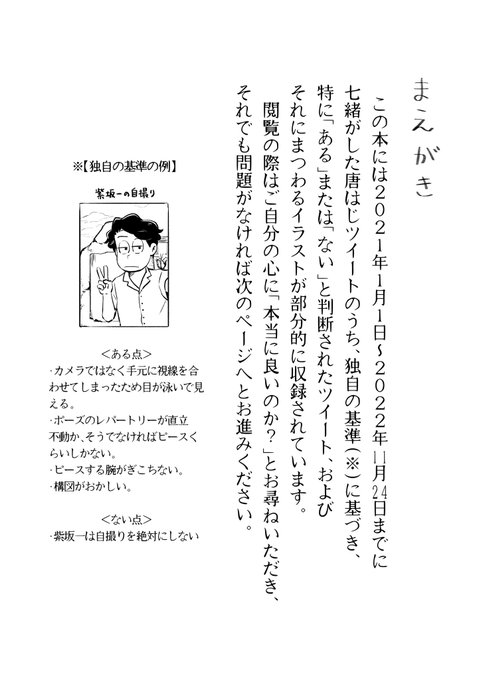 まえがき
この本には2021年1月1日~2022年11月24日までに
七緒がした唐はじツイートのうち、独自の基準(※)に基づき、
特に「ある」または「ない」と判断されたツイート、および
それにまつわるイラストが部分的に収録されています。
閲覧の際はご自分の心に「本当に良いのか?」とお尋ねいただき、
それでも問題がなければ次のページへとお進みください。
※【独自の基準の例】
紫坂一の自撮り
<ある点>
・カメラではなく手元に視線を合
わせてしまったため目が泳いで見
える。
・ポーズのレパートリーが直立
不動か、そうでなければピースく
らいしかない。
・ピースする腕がぎこちない。
・構図がおかしい。
<ない点>
・紫坂一は自撮りを絶対にしない